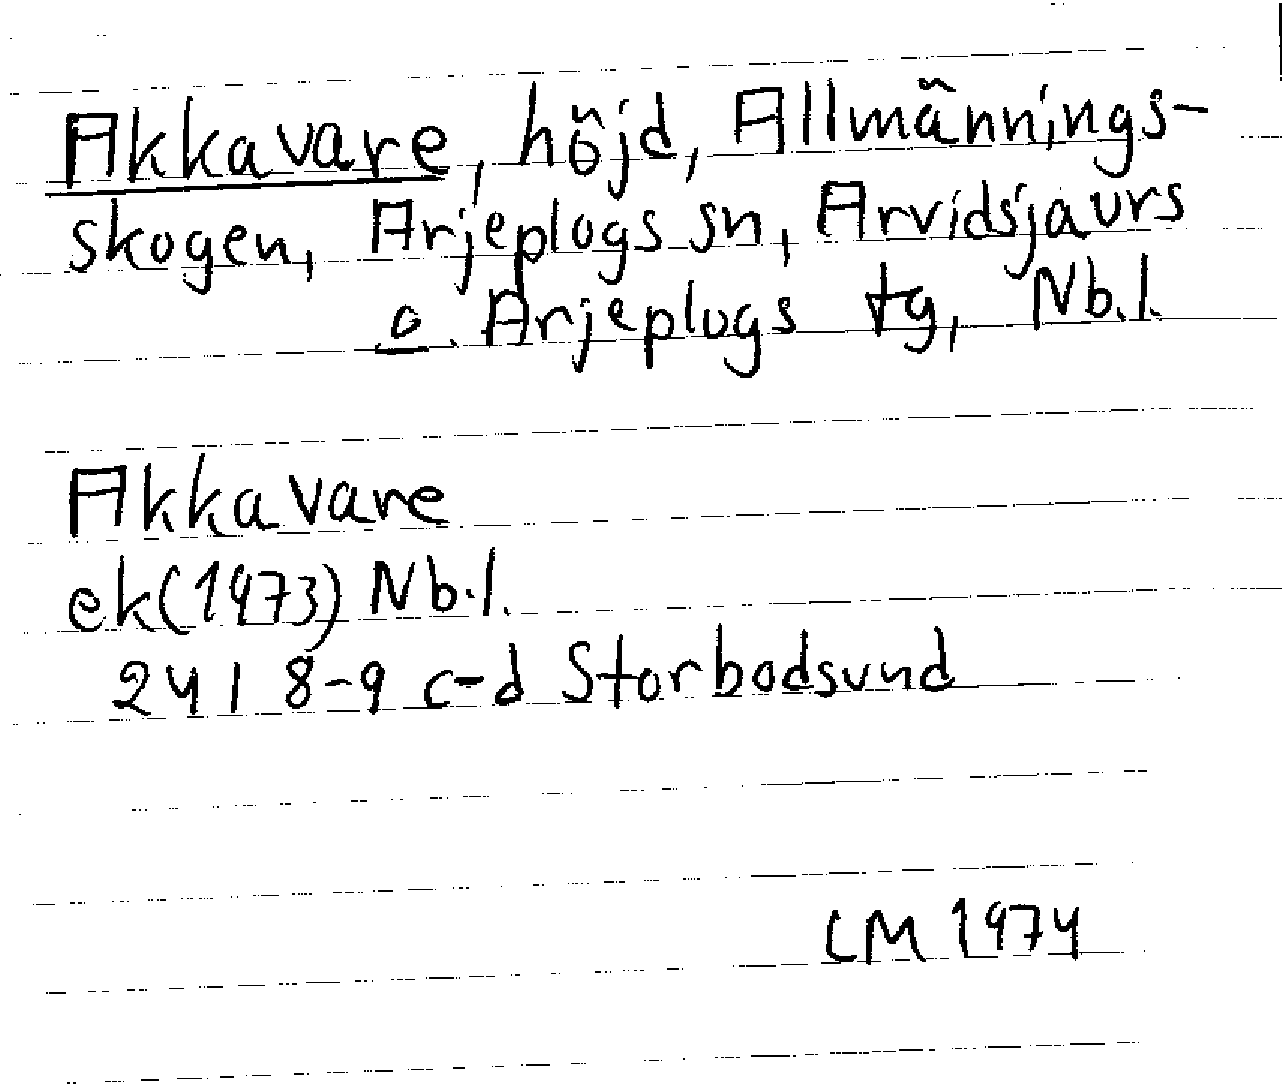 Akkavare, höjd, Allmännings-
skogen, Arjeplogs sn, Arvidsjaurs
o. Arjeplogs tg, Nb.l.
Akkavare
ek(1973) Nb.l.
24I 8-9 c-d Storbodsund
CM 1974